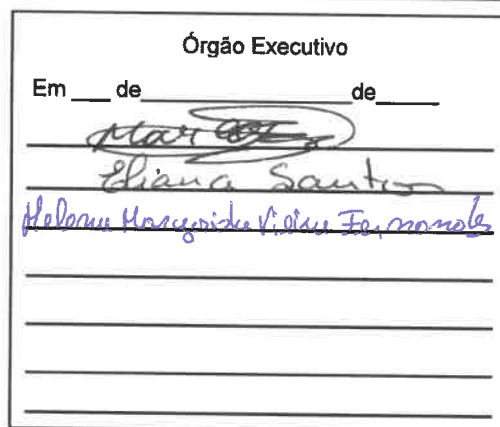 Órgão Executivo
Em ___ de ______________ de _____
Eliana Santos
Helena Margarida Vieira Fernandes